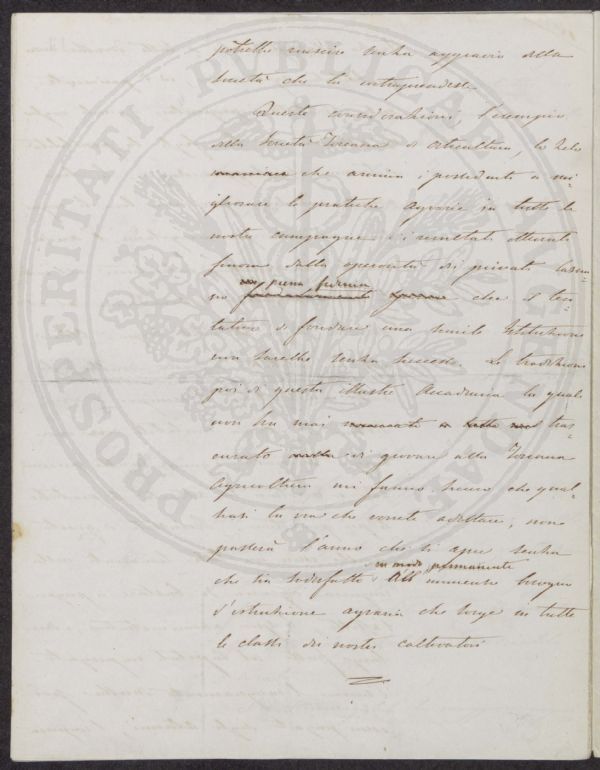 potrebbe riuscire senza aggravio della
società che la intraprendesse.
Queste considerazioni, l'esempio
della Società Toscana di Orticultura, lo zelo
che anima i possidenti a mi-
gliorare le pratiche agrarie in tutte le
nostre campagne, i resultati ottenuti
finora dalla operosità dei privati
piena fiducia
no che il ten-
tativo di fondare una simile Istituzione
non sarebbe senza successo. Le tradizioni
poi di questa illustre Accademia la quale
non ha mai tras-
curato di giovare alla Toscana
Agricoltura mi fanno sicuro che qual-
siasi la via che vorrete adottare, non
passerà l'anno che si apre senza
in modo permanente
che sia sodisfatto all'immenso bisogno
d'istruzione agraria che sorge in tutte
le classi dei nostri cultivatori
PROSPERITATI PUBLICAE AUGENDAE